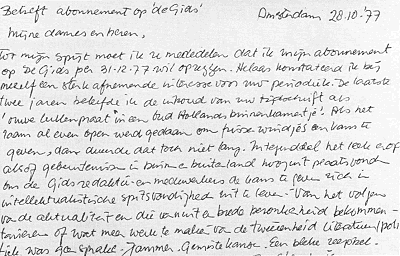 Betreft abonnement op 'de Gids'
Amsterdam 28.10.'77
Mijne dames en heren,
Tot mijn spijt moet ik u mededelen dat ik mijn abonnement
op 'De Gids per 31-12-77 wil opzeggen. Helaas konstateerde ik bij
mezelf een sterk afnemende interesse voor uw periodiek. De laatste
twee jaren beleefde ik de inhoud van uw tijdschrift als
'ouwe lullenpraat' in een oud Hollands binnenkamertje'. Als het
raam al even open werd gedaan om frisse windjes een kans te
geven, dan duurde dat toch niet lang. Integendeel het leek er op
alsof gebeurtenissen in binnen buiteland nog niet plaatsvonden
om de Gidsredaktie en medewerkers de kans te geven zich in
intellektualistische spitsvondigheid uit te leven. Van het volgen
van de aktualiteit en die van uit een brede bezonkenheid bekommen-
tariëren of wat meer werk te maken van de tweeeenheid literatuur/poli
tiek was geen sprake. Jammer. Gemiste kans. Een bleke recipiel.